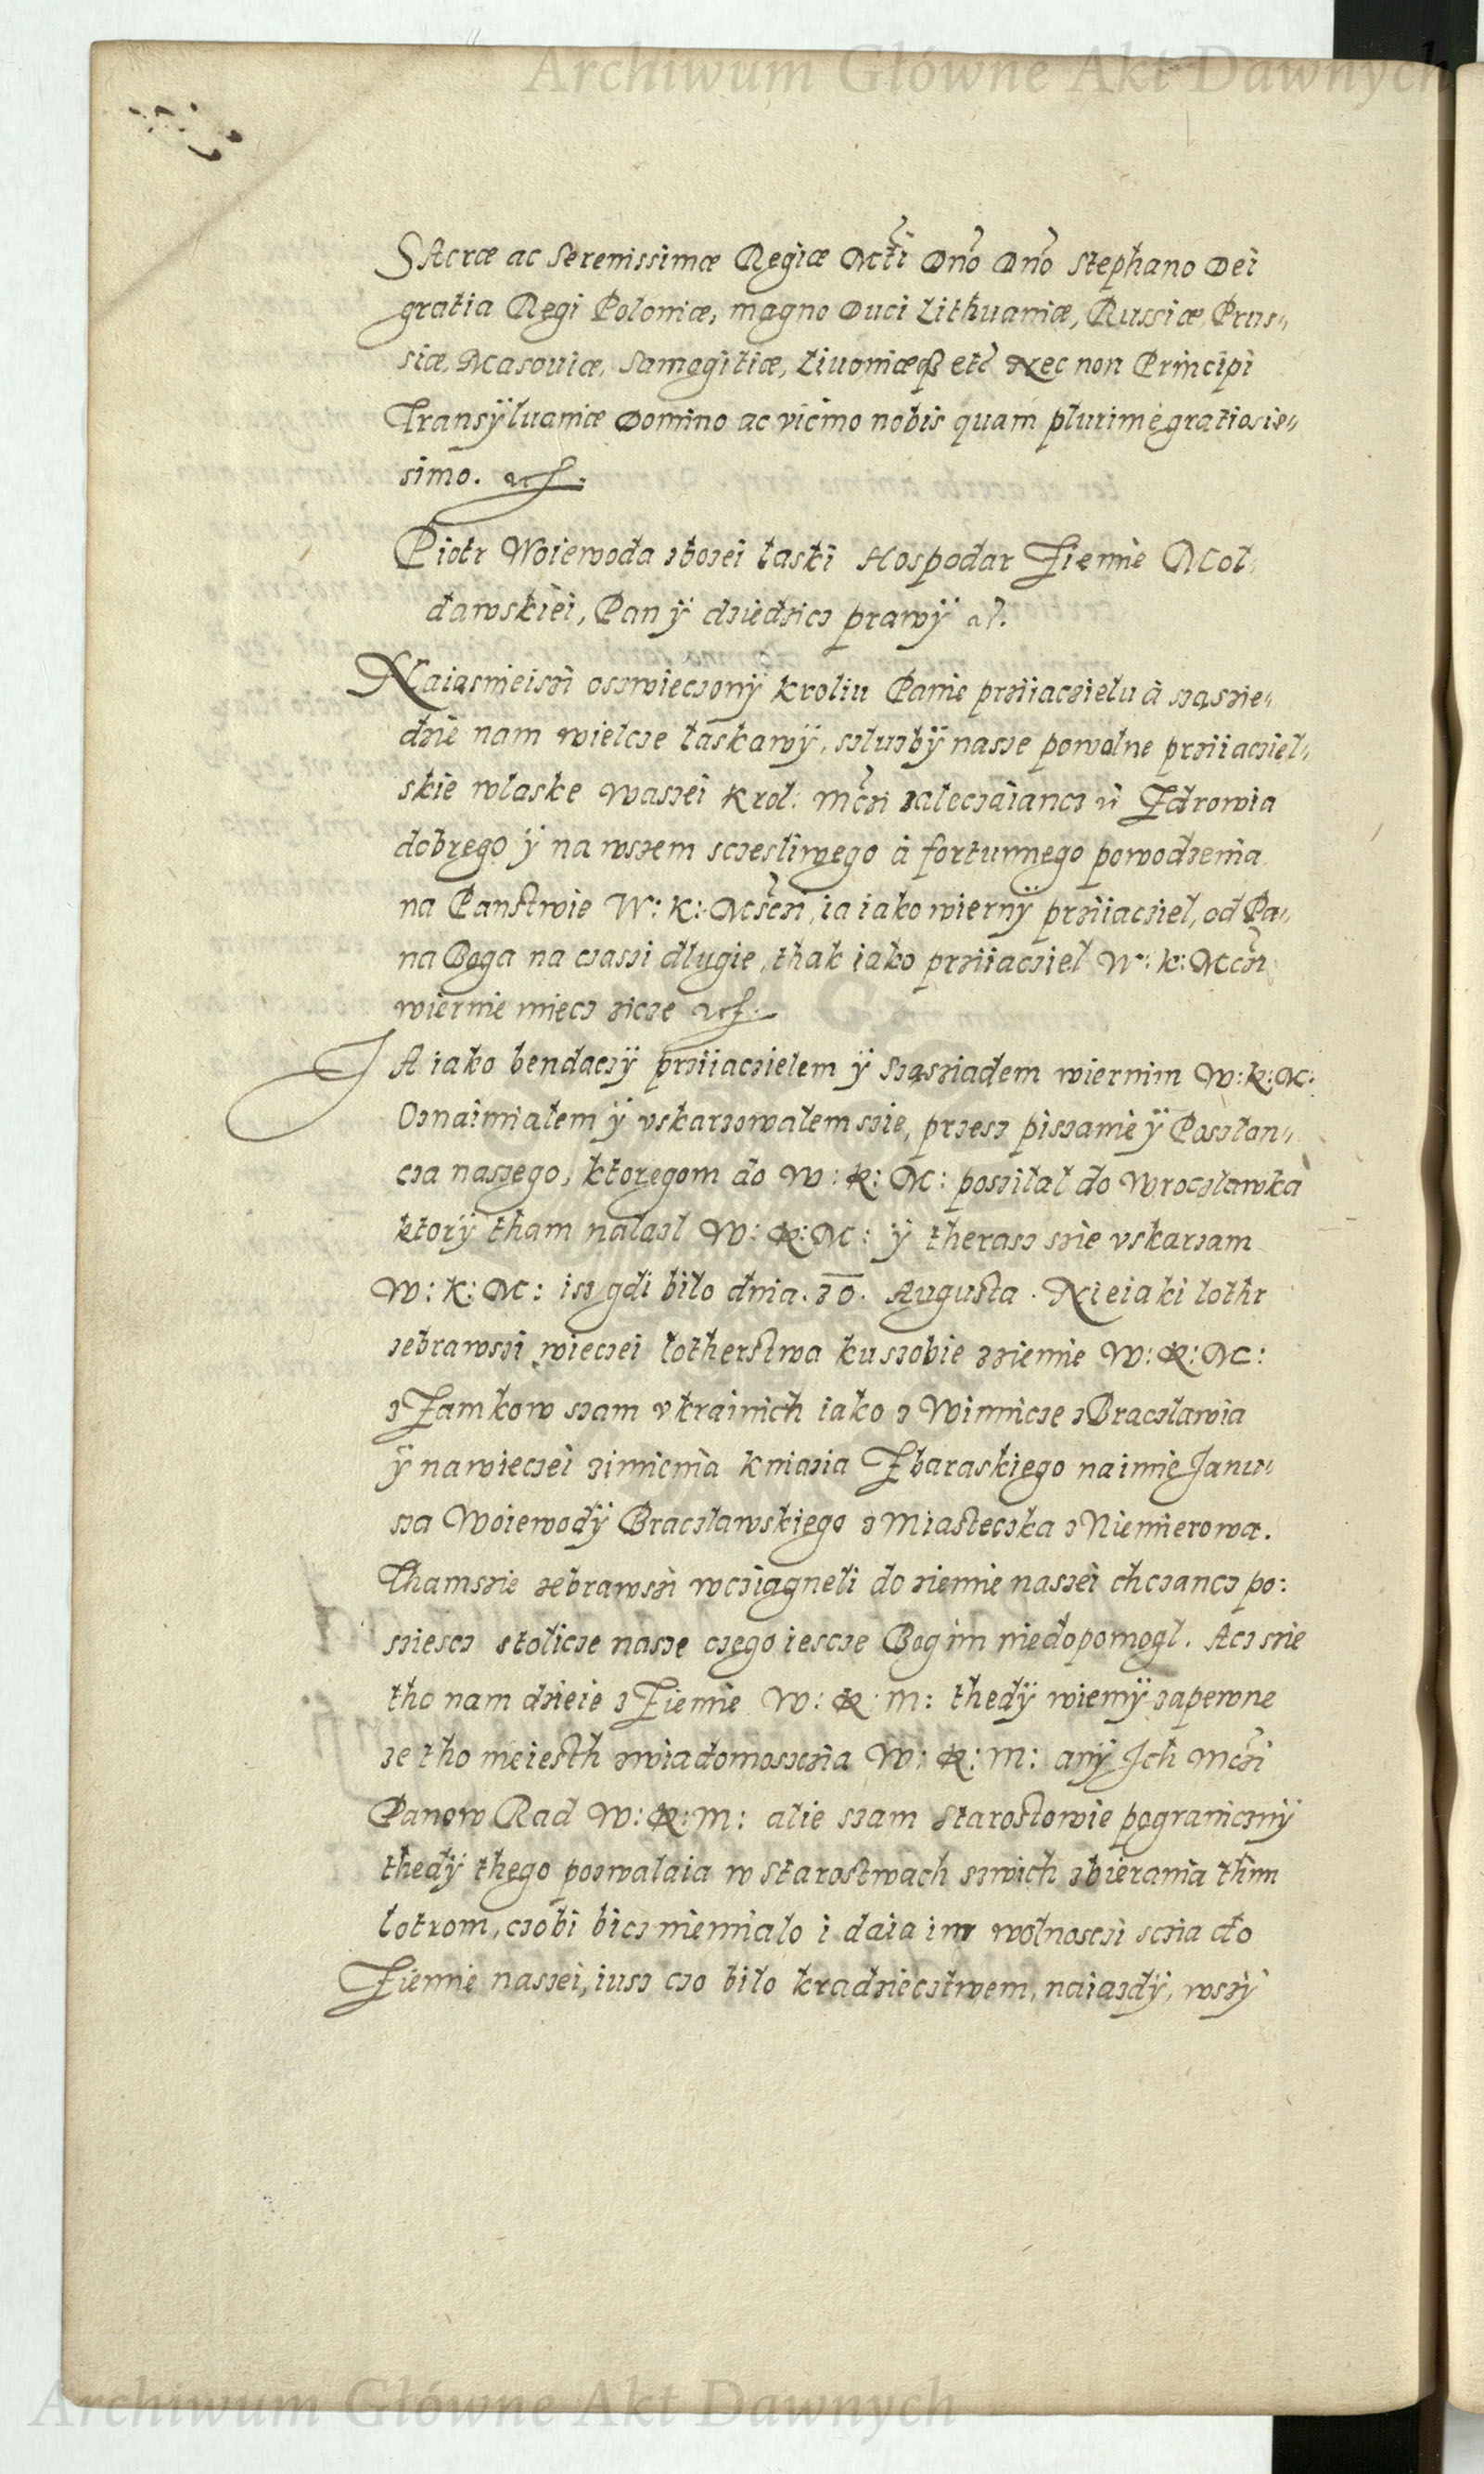 Archiwum Główne Akt Dawnych
SAcræ ac Serenissimæ Regiæ Mcti Dno Dno Stephano Dei
gratia Regi Poloniæ, magno Duci Lithuaniæ, Russiæ Prus„
siæ, Masouiæ, Samogitiæ, Liuoniæq3 etc Nec non Principi
Transÿluaniæ Domino ac vicino nobis quam plurime gratiosis„
simo.
Piotr Woiewoda zbozei laski Hospodar Ziemie Mol„
dawskiei, Pan ÿ dziedzicz prawÿ
Naiasnieiszi oszwieczonÿ kroliu Panie prziiaczielu à sząszie„
dzie nam wielcze laskawÿ, szluzbÿ nasze powolne prziiacziel„
skie wlaske waszei Krol: Mczi zaleczaiancz ÿ Zdrowia
dobrego ÿ na wszem sczesliwego à fortunnego powodzenia
na Panstwie W: K: Msczi, ia iako wiernÿ prziiaciel, od Pa„
na Boga na czaszi dlugie, thak iako prziiacziel W: K: Mczi
wiernie miecz zicze
JA iako bendaczÿ prziiaczielem ÿ sząsziadem wiernim W: K: M:
Oznaimialem ÿ vskarzowalem szie, przesz piszanie ÿ Poszlan„
cza naszego, ktoregom do W: K: M: poszilal do Wroczlawka
ktorÿ tham nalazl W: K: M: ÿ therasz szie vskarzam
W: K: M: isz gdi bilo dnia. 30. Augusta. Nieiaki lothr
zebrawszi wieczei lotherstwa ku szobie zziemie W: K: M:
z Zamkow szam vkrainich iako z Winnicze z Braczlawia
ÿ nawieczei zimienia kniazia Zbaraskiego na imie Janu„
sza Woiewodÿ Braczlawskiego z Miasteczka z Niemierowa.
Thamszie zebrawszi wcziagneli do ziemie naszei chczancz po:
sziescz stolicze nasze czego iescze Bog im niedopomogl. Acz szie
tho nam dzieie z Ziemie W: K: M: thedÿ wiemÿ zapewne
ze tho nieiesth zwiadomosczia W: K: M: anÿ Jch Mczi
Panow Rad W: K: M: alie szam Starostowie pogranicznÿ
thedÿ thego pozwalaia w Starostwach szwich zbierania thim
lotrom, czobi bicz niemialo i daia im wolnosczi sczia do
Ziemie naszei, iusz czo bilo kradzieczstwem, naiazdÿ, wszÿ
Archiwum Główne Akt Dawnych